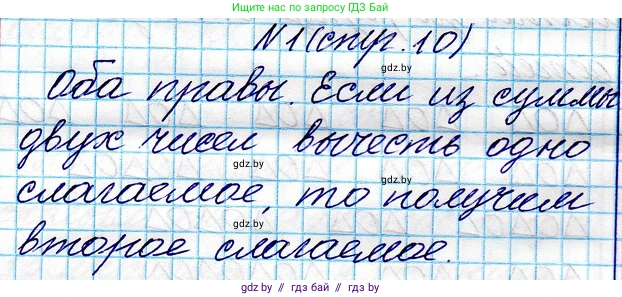 Ищите нас по запросу ГДЗ БАЙ
N1(стр.10)
gdz.by
Оба правы. Если из суммы
двух чисел вычесть одно
gdz.by
слагаемое, то получим
gdz.by
gdz.by
второе слагаемое.
gdz.by // гдз бай // гдз.by